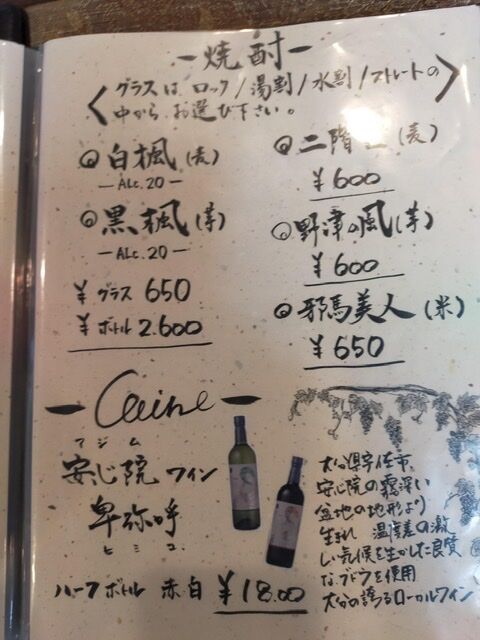 ー焼酎ー
グラスは、ロック/湯割/水割/ストレートの
中から、お選び下さい。
白楓(麦)
ーALC.20ー
黒楓(芋)
ーALC.20ー
¥グラス 650
¥ボトル 2.600
二階(麦)
¥600
野津の風(芋)
¥600
耶馬美人(米)
¥650
アジム
安心院 ワイン
卑弥呼
ヒミコ
ハーフボトル 赤 白 ¥18.00
大分県宇佐市、
安心院の霧深い
盆地の地形より
生まれ 温度差の激
しい気候を生かした良質
なブドウを使用
大分の誇るローカルワイン